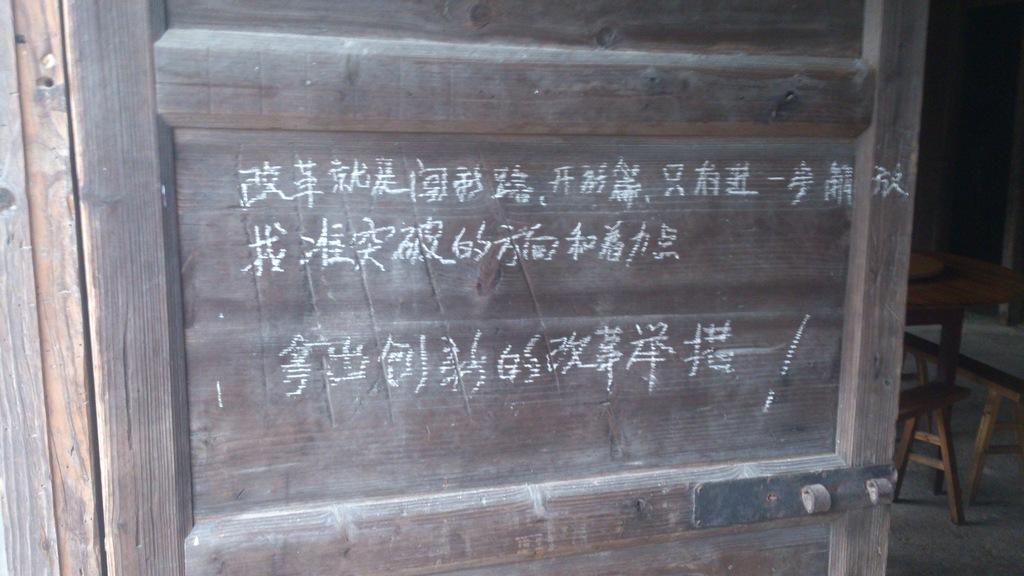 改革就是闯新路、开新篇、只有进一步解放
找准突破的方向和着力点
拿出创新的改革举措！